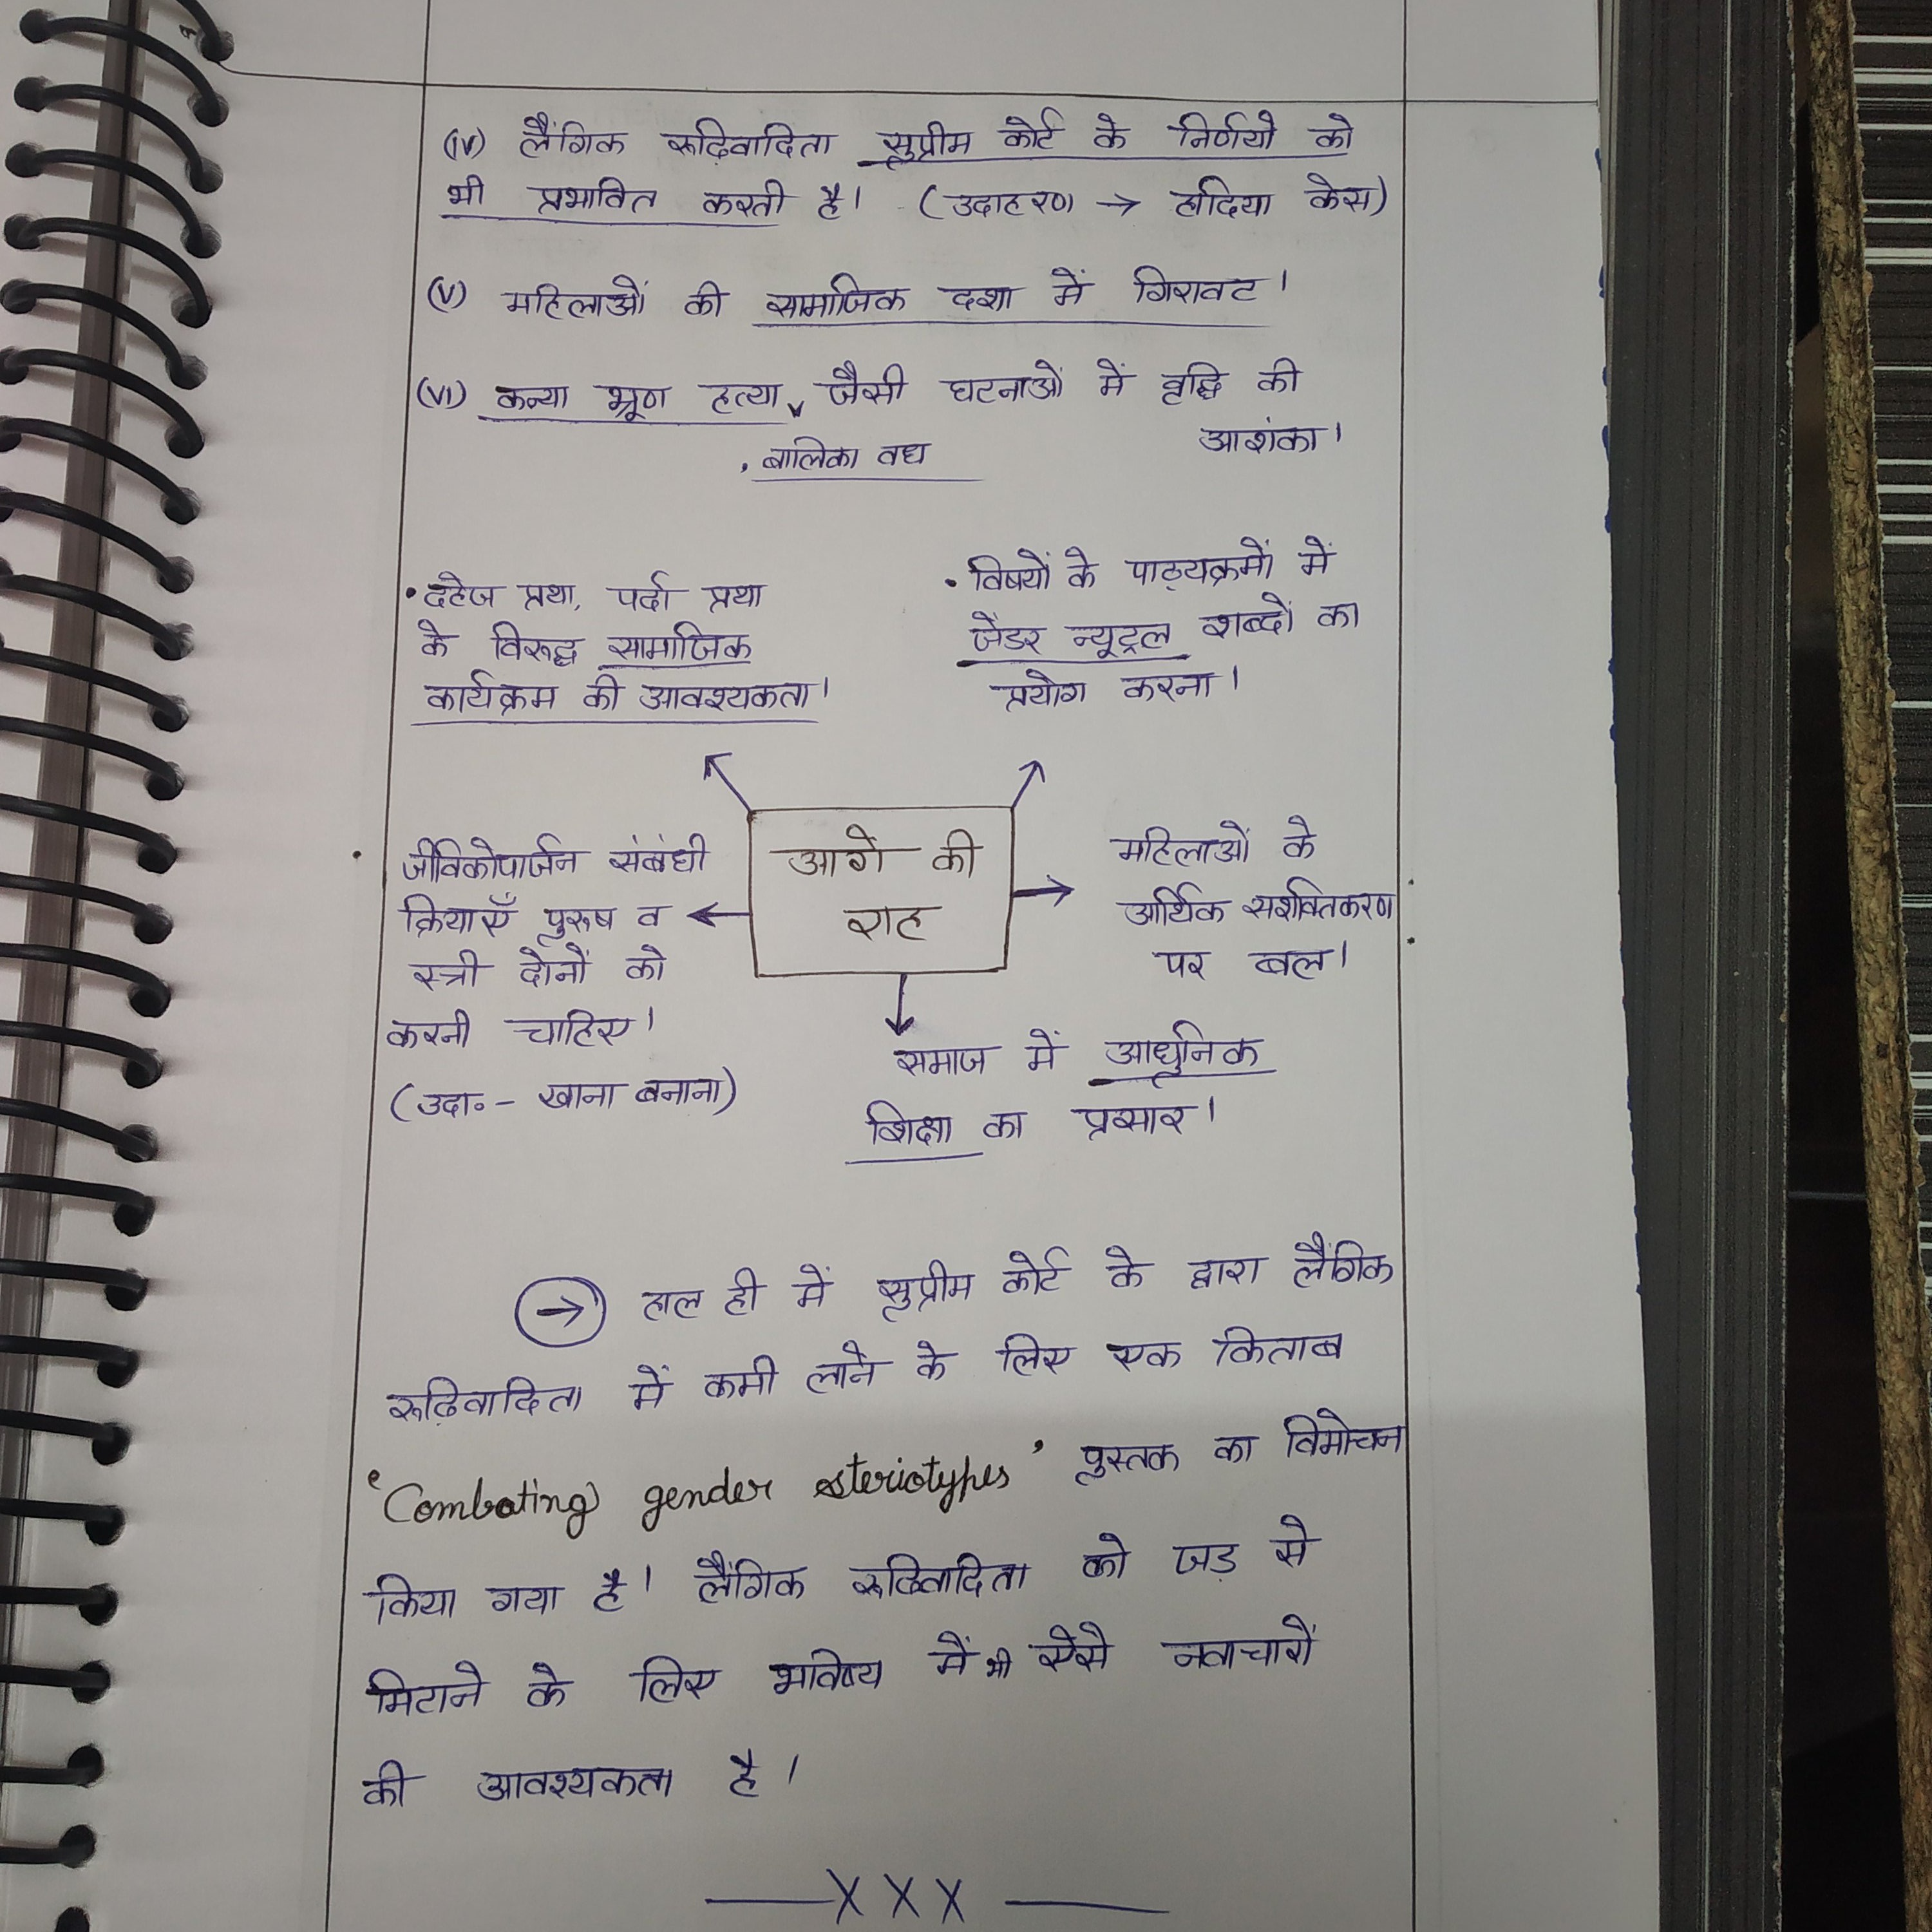 (iv) लैंगिक रूढ़िवादिता सुप्रीम कोर्ट के निर्णयो को
भी प्रभावित करती है। (उदाहरण → हादिया केस)
(v) महिलाओं की सामाजिक दशा में गिरावट।
(vi) कन्या भ्रूण हत्या, जैसी घटनाओं में वृद्धि की
आशंका।
, बालिका वध
• दहेज प्रथा, पर्दा प्रथा
के विरूद्ध सामाजिक
कार्यक्रम की आवश्यकता।
• विषयों के पाठ्यक्रमों में
जेंडर न्यूट्रल शब्दों का
प्रयोग करना।
• जीविकोपार्जन संबंधी
क्रियाएँ पुरुष व
स्त्री दोनों को
करनी चाहिए।
(उदा॰ - खाना बनाना)
आगे की
राह
महिलाओं के
आर्थिक सशक्तिकरण
पर बल।
समाज में आधुनिक
शिक्षा का प्रसार।
→ हाल ही में सुप्रीम कोर्ट के द्वारा लैंगिक
रूढ़िवादिता में कमी लाने के लिए एक किताब
'Combating gender steriotypes' पुस्तक का विमोचन
किया गया है। लैंगिक रूढिवादिता को जड़ से
मिटाने के लिए भविष्य में भी ऐसे नवाचारों
की आवश्यकता है।
—X X X—